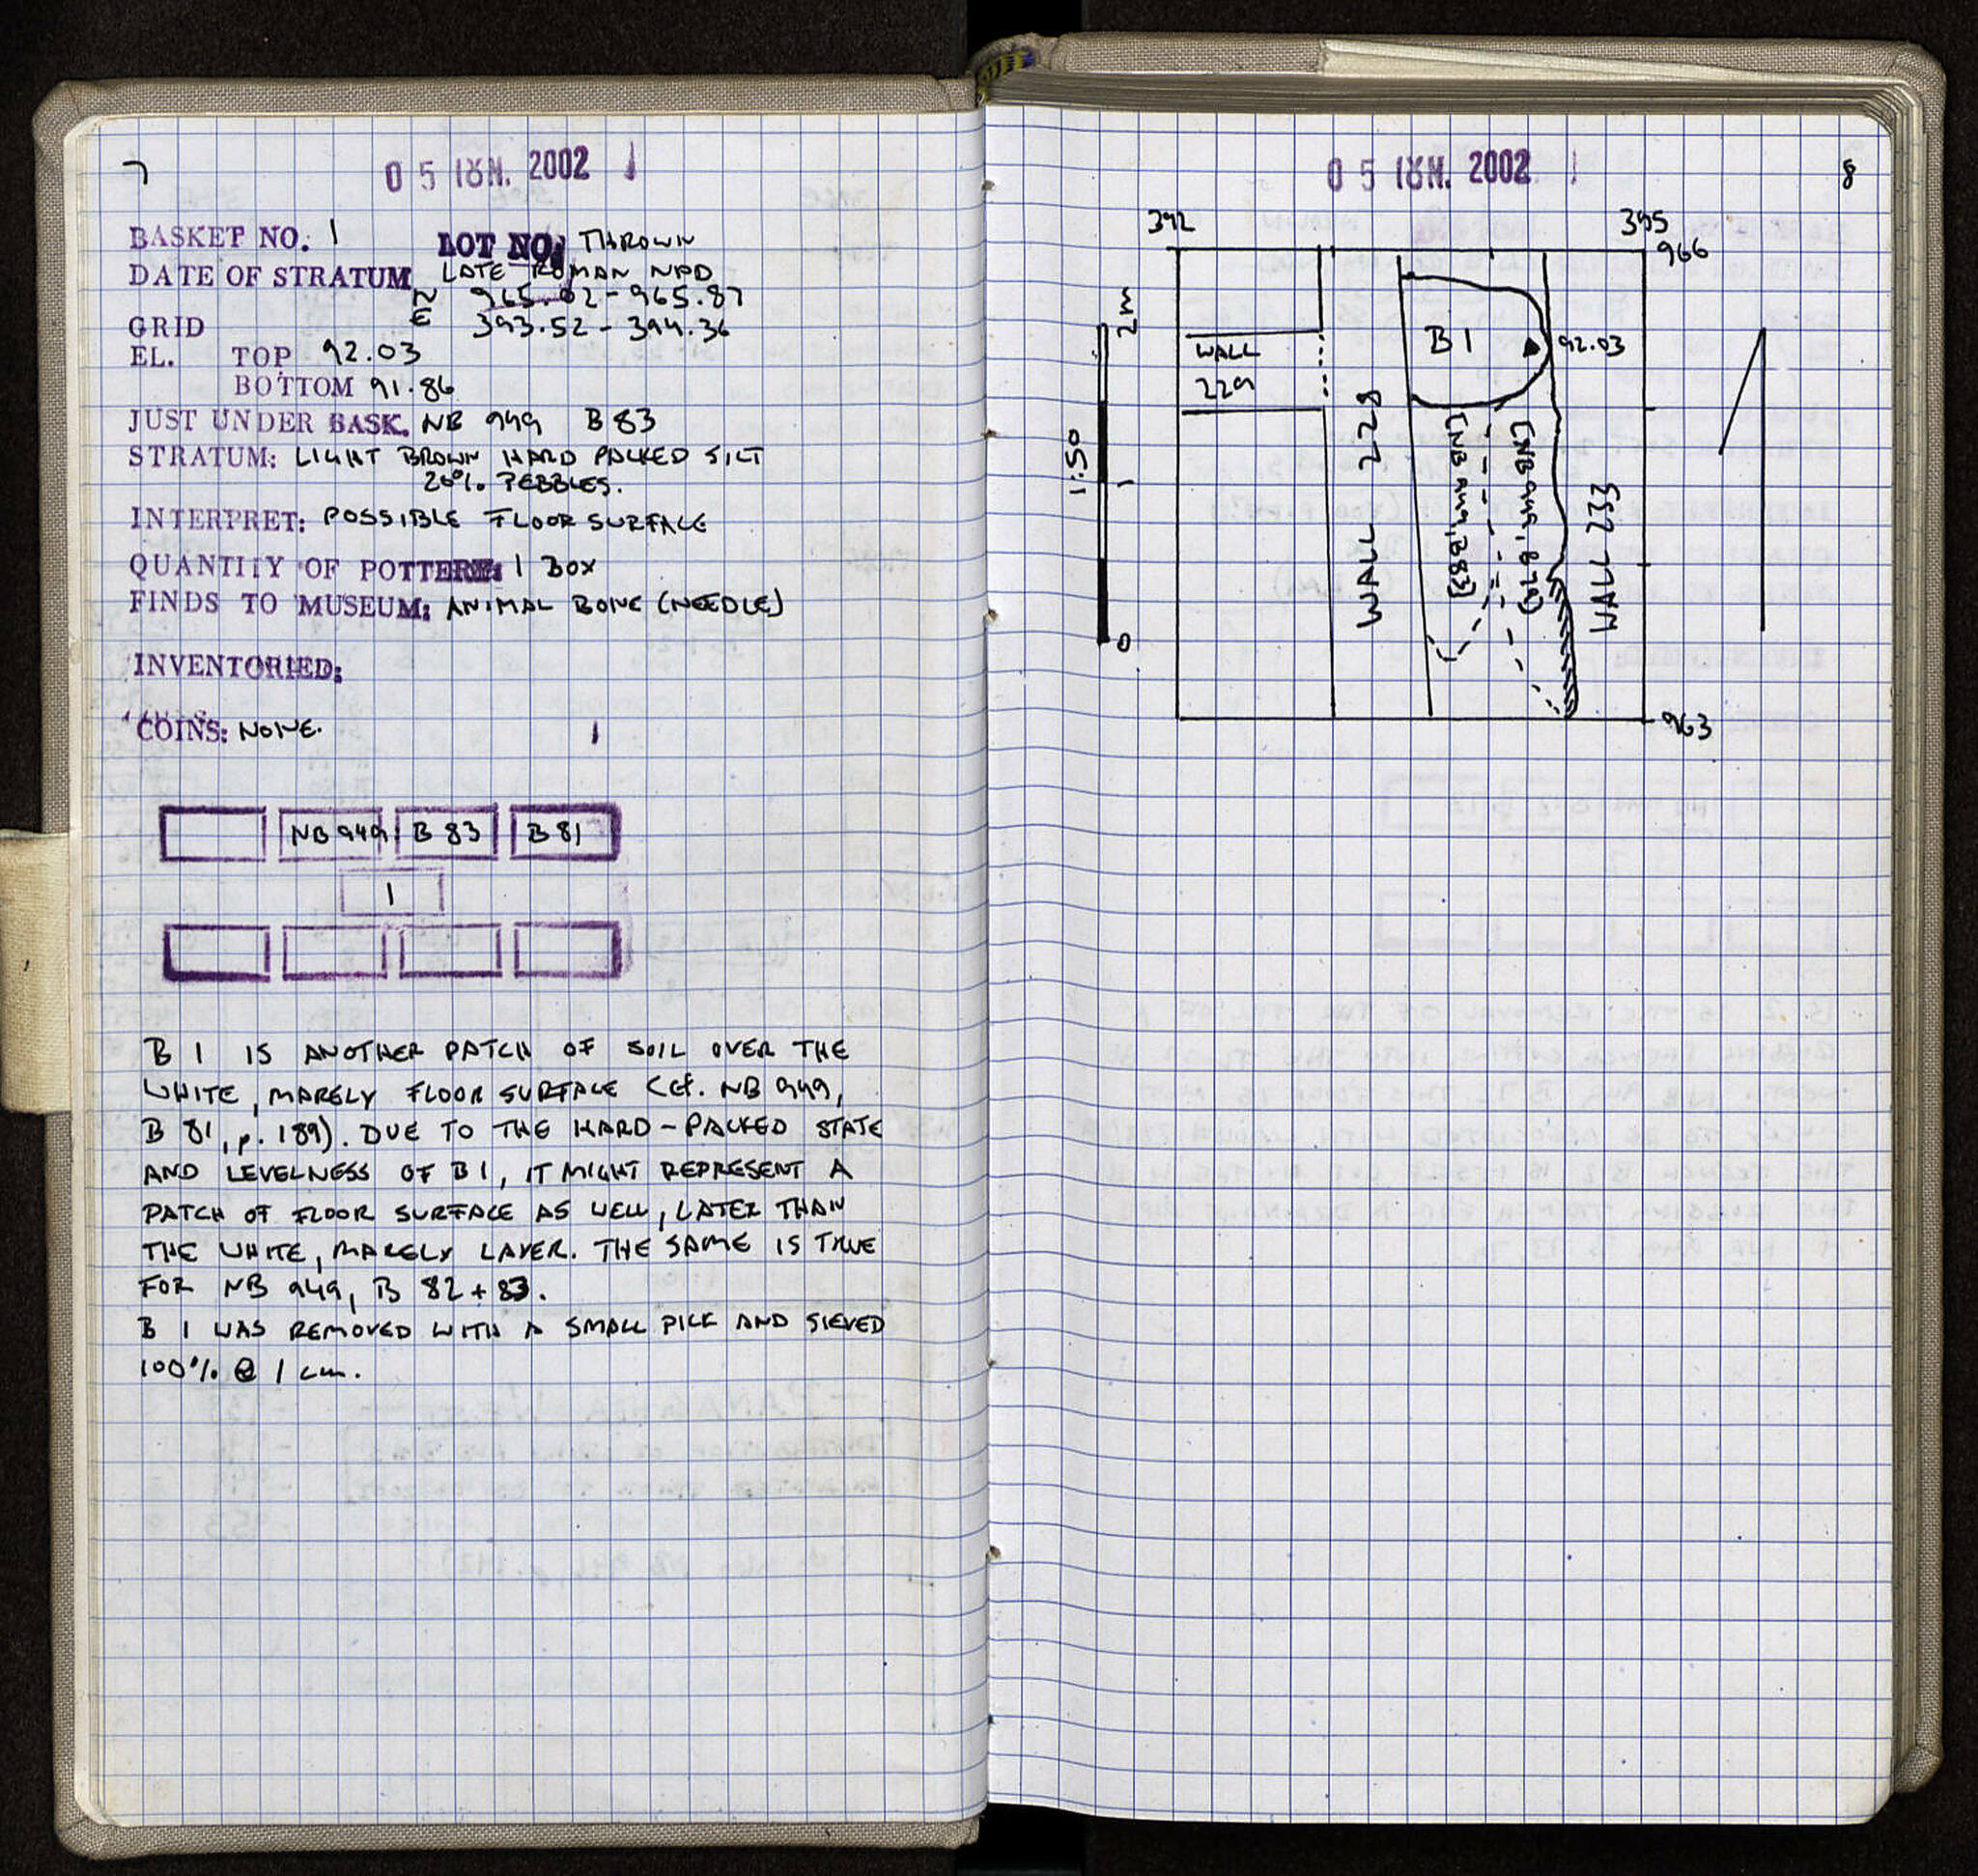 7
05 ΙΟΥΝ. 2002
BASKET NO. 1 LOT NO. THROWN
DATE OF STRATUM LATE ROMAN NPD
N 965.02 - 965.87
GRID E 393.52 - 394.36
EL. TOP 92.03
BOTTOM 91.86
JUST UNDER BASK. NB 949 B 83
STRATUM: LIGHT BROWN HARD PACKED SILT
20% PEBBLES.
INTERPRET: POSSIBLE FLOOR SURFACE
QUANTITY OF POTTERY: 1 BOX
FINDS TO MUSEUM: ANIMAL BONE (NEEDLE)
INVENTORIED:
COINS: NONE.
NB 949 B 83 B 81
1
B 1 IS ANOTHER PATCH OF SOIL OVER THE
WHITE, MARELY FLOOR SURFACE (cf. NB 949,
B 81, p. 189). DUE TO THE HARD-PACKED STATE
AND LEVELNESS OF B1, IT MIGHT REPRESENT A
PATCH OF FLOOR SURFACE AS WELL, LATER THAN
THE WHITE, MARELY LAYER. THE SAME IS TRUE
FOR NB 949, B 82 + 83.
B 1 WAS REMOVED WITH A SMALL PICK AND SIEVED
100% @ 1 cm.
05 ΙΟΥΝ. 2002
8
392
395
966
2m
B1
92.03
WALL
229
WALL 228
[NB 949, B83]
WALL 233
1:50
1
0
963